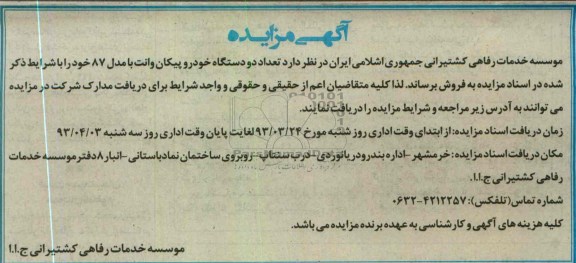 آگهی مزایده
موسسه خدمات رفاهی کشتیرانی جمهوری اسلامی ایران در نظر دارد تعداد دو دستگاه خودرو پیکان وانت با مدل ۸۷ خود را با شرایط ذکر
شده در اسناد مزایده به فروش برساند. لذا کلیه متقاضیان اعم از حقیقی و حقوقی و واجد شرایط برای دریافت مدارک شرکت در مزایده
می توانند به آدرس زیر مراجعه و شرایط مزایده را دریافت نمایند.
زمان دریافت اسناد مزایده: از ابتدای وقت اداری روز شنبه مورخ ۹۳/۰۳/۲۴ لغایت پایان وقت اداری روز سه شنبه ۹۳/۰۴/۰۳
مکان دریافت اسناد مزایده: خرمشهر -اداره بندر و دریانوردی- درب سنتاپ- روبروی ساختمان نماد باستانی -انبار ۸ دفتر موسسه خدمات
رفاهی کشتیرانی ج.ا.ا.
شماره تماس (تلفکس): ۴۲۱۲۲۵۷-۰۶۳۲
کلیه هزینه های آگهی و کارشناسی به عهده برنده مزایده می باشد.
موسسه خدمات رفاهی کشتیرانی ج.ا.ا